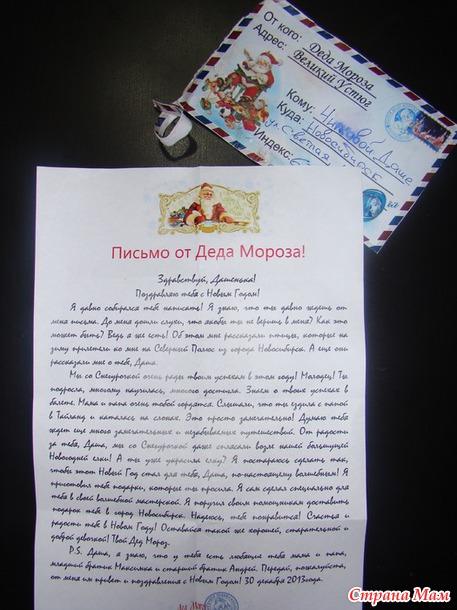 От кого: Деда Мороза
Адрес: Великий Устюг
Кому: Даше
Куда: Новосибирск
ул. Светлая
Индекс: 6
Письмо от Деда Мороза!
Здравствуй, Дашенька!
Поздравляю тебя с Новым Годом!
Я давно собирался тебе написать! Я знаю, что ты давно ждешь от
меня письма. До меня дошли слухи, что якобы ты не веришь в меня? Как это
может быть? Ведь я же есть! Об этом мне рассказали птицы, которые на
зиму прилетели ко мне на Северный Полюс из города Новосибирск. А еще они
рассказали мне о тебе, Даша.
Мы со Снегурочкой очень рады твоим успехам в этом году! Молодец! Ты
подросла, многому научилась, многого достигла. Знаем о твоих успехах в
балете. Мама и папа очень тобой гордятся. Слышали, что ты ездила с папой
в Тайланд и каталась на слонах. Это просто замечательно! Думаю тебя
ждет еще много замечательных и незабываемых путешествий. От радости
за тебя, Даша, мы со Снегурочкой даже сплясали возле нашей большущей
Новогодней елки! А ты уже украсила елку? Я постараюсь сделать так,
чтобы этот Новый Год стал для тебя, Даша, по-настоящему волшебным! Я
приготовил тебе подарки, которые ты просила. Я сам сделал специально для
тебя в своей волшебной мастерской. Я поручил своим помощникам доставить
подарок тебе в город Новосибирск. Надеюсь, тебе понравится! Счастья и
радости тебе в Новом Году! Оставайся такой же хорошей, старательной и
доброй девочкой! Твой Дед Мороз.
P.S. Даша, я знаю, что у тебя есть любящие тебя мама и папа,
младший братик Максимка и старший братик Андрей. Передай, пожалуйста,
от меня им привет и поздравления с Новым Годом! 30 декабря 2013года.
Страна Мам